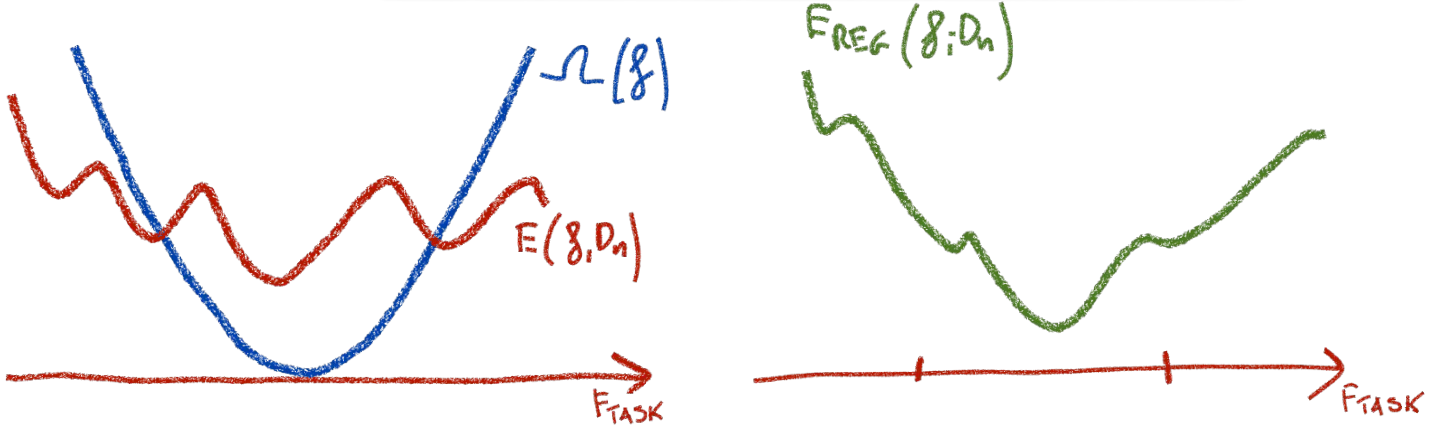 Ω(f)
E(f,Dn)
FTASK
EREG(f;Dn)
FTASK